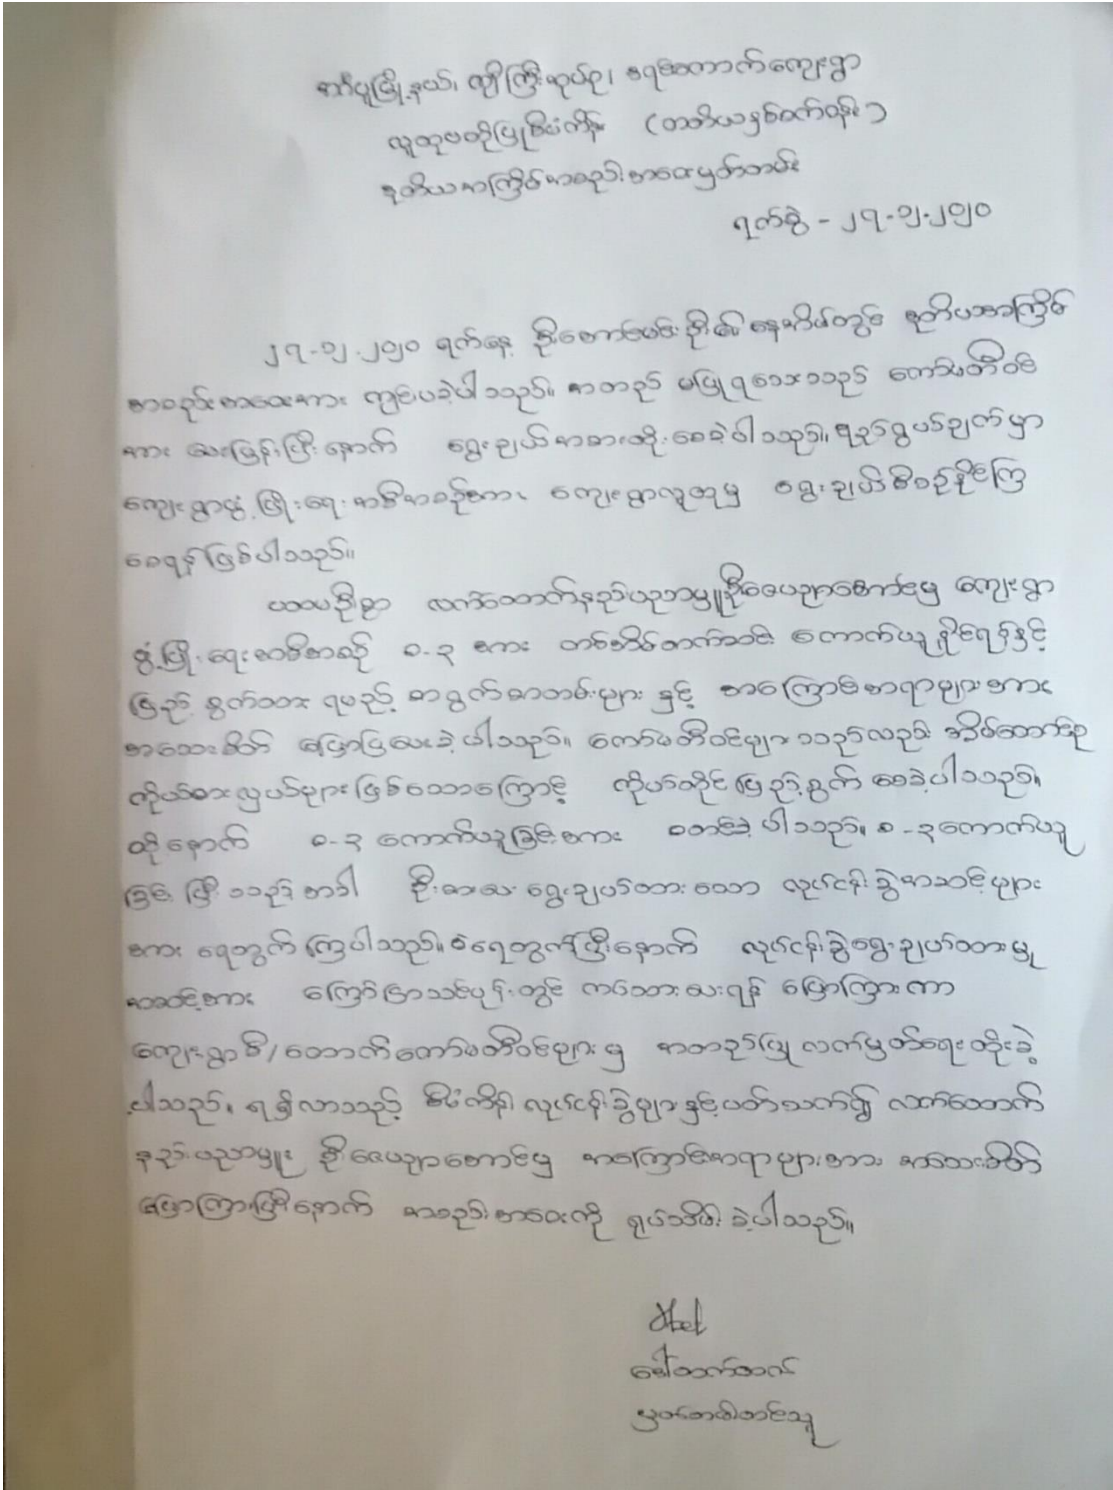 အင်္ဂပူမြို့နယ်၊ ကျုံကြီးအုပ်စု၊ ရေစကောက်ကျေးရွာ
လူထုဗဟိုပြုစီမံကိန်း (တတိယနှစ်စက်ဝန်း)
ဒုတိယအကြိမ်အစည်းအဝေးမှတ်တမ်း
ရက်စွဲ - ၂၇-၁၂-၂၀၂၀
၂၇-၁၂-၂၀၂၀ ရက်နေ့ ဦးအောင်မင်းဦး၏ နေအိမ်တွင် ဒုတိယအကြိမ်
အစည်းအဝေးအား ကျင်းပခဲ့ပါသည်။ အတည် မပြုရသေးသည် ကော်မတီဝင်
အား မေးမြန်းပြီးနောက် ရွေးချယ်အစားထိုးစေခဲ့ပါသည်။ ရည်ရွယ်ချက်မှာ
ကျေးရွာဖွံ့ဖြိုးရေးအစီအစဉ်အား ကျေးရွာလူထုမှ ရွေးချယ်စီစဉ်နိုင်ကြ
စေရန် ဖြစ်ပါသည်။
ပထမဦးစွာ လက်ထောက်နည်းပညာမှူးဦးဇေယျာအောင်မှ ကျေးရွာ
ဖွံ့ဖြိုးရေးအစီအစဉ် စ-၃ အား တစ်အိမ်တက်ဆင်း ကောက်ယူနိုင်ရန်နှင့်
ဖြည့်စွက်သား ရမည့် အချက်အလက်များ နှင့် အကြောင်းအရာများအား
အသေးစိတ် ပြောပြပေးခဲ့ပါသည်။ ကော်မတီဝင်များသည်လည်း အိမ်ထောင်စု
ကိုယ်စားလှယ်များဖြစ်သောကြောင့် ကိုယ်တိုင်ဖြည့်စွက် စေခဲ့ပါသည်။
ထို့နောက် စ-၃ ကောက်ယူခြင်းအား စတင်ခဲ့ပါသည်။ စ-၃ကောက်ယူ
ခြင်း ပြီးသည့်အခါ ဦးစားပေးရွေးချယ်ထားသော လုပ်ငန်းခွဲအဆင့်များ
အား ရေတွက်ကြပါသည်။ စံရေတွက်ပြီးနောက် လုပ်ငန်းခွဲရွေးချယ်ထားမှု
အဆင့်အား ကြော်ငြာသင်ပုန်းတွင် ကပ်ထားပေးရန် ပြောကြားကာ
ကျေးရွာစီ/ထောက်ကော်မတီဝင်များမှ အတည်ပြုလက်မှတ်ရေးထိုးခဲ့
ပါသည်။ ရရှိလာသည့် စီမံကိန်း လုပ်ငန်းခွဲများနှင့်ပတ်သက်၍ လက်ထောက်
နည်းပညာမှူး ဦးဇေယျာအောင်မှ အကြောင်းအရာများအား အသေးစိတ်
ပြောကြားပြီးနောက် အစည်းအဝေးကို ရုပ်သိမ်းခဲ့ပါသည်။
ဒေါ်ထက်ထက်
မှတ်တမ်းတင်သူ